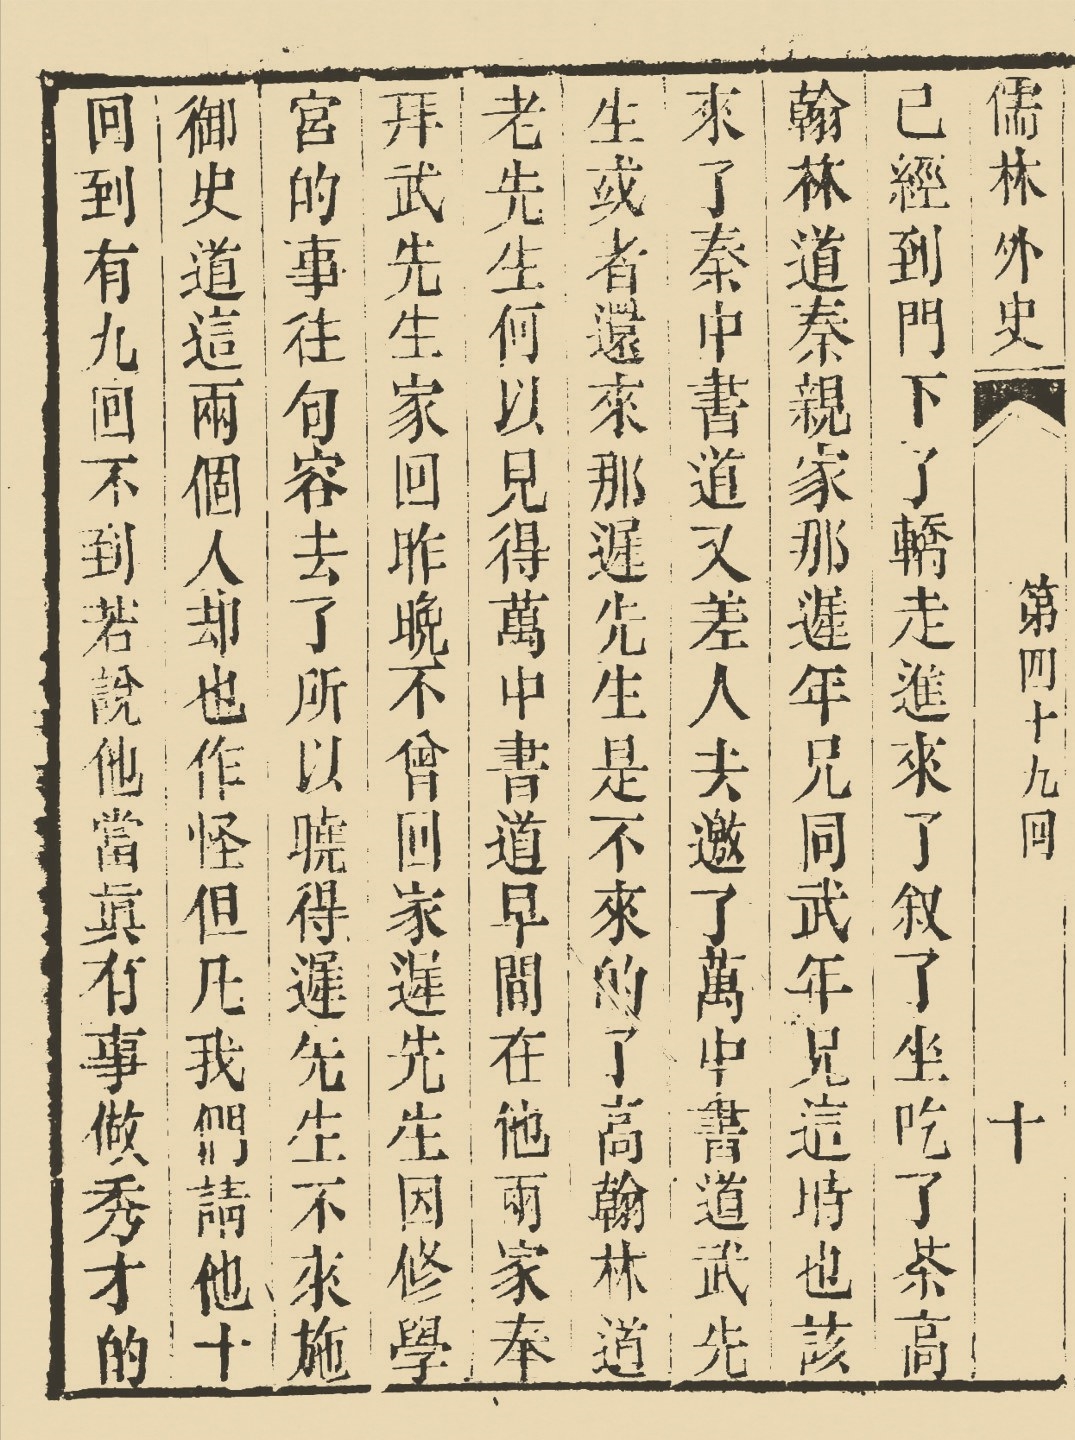 儒林外史
第四十九回
十
已經到門下了轎走進來了叙了坐吃了茶高
翰林道秦親家那遲年兄同武年兄這時也該
來了秦中書道又差人去邀了萬中書道武先
生或者還來那遲先生是不來的了高翰林道
老先生何以見得萬中書道早間在他兩家奉
拜武先生家回昨晚不曾回家遲先生因修學
宮的事往句容去了所以曉得遲先生不來施
御史道這兩個人却也作怪但凡我們請他十
回到有九回不到若說他當眞有事做秀才的